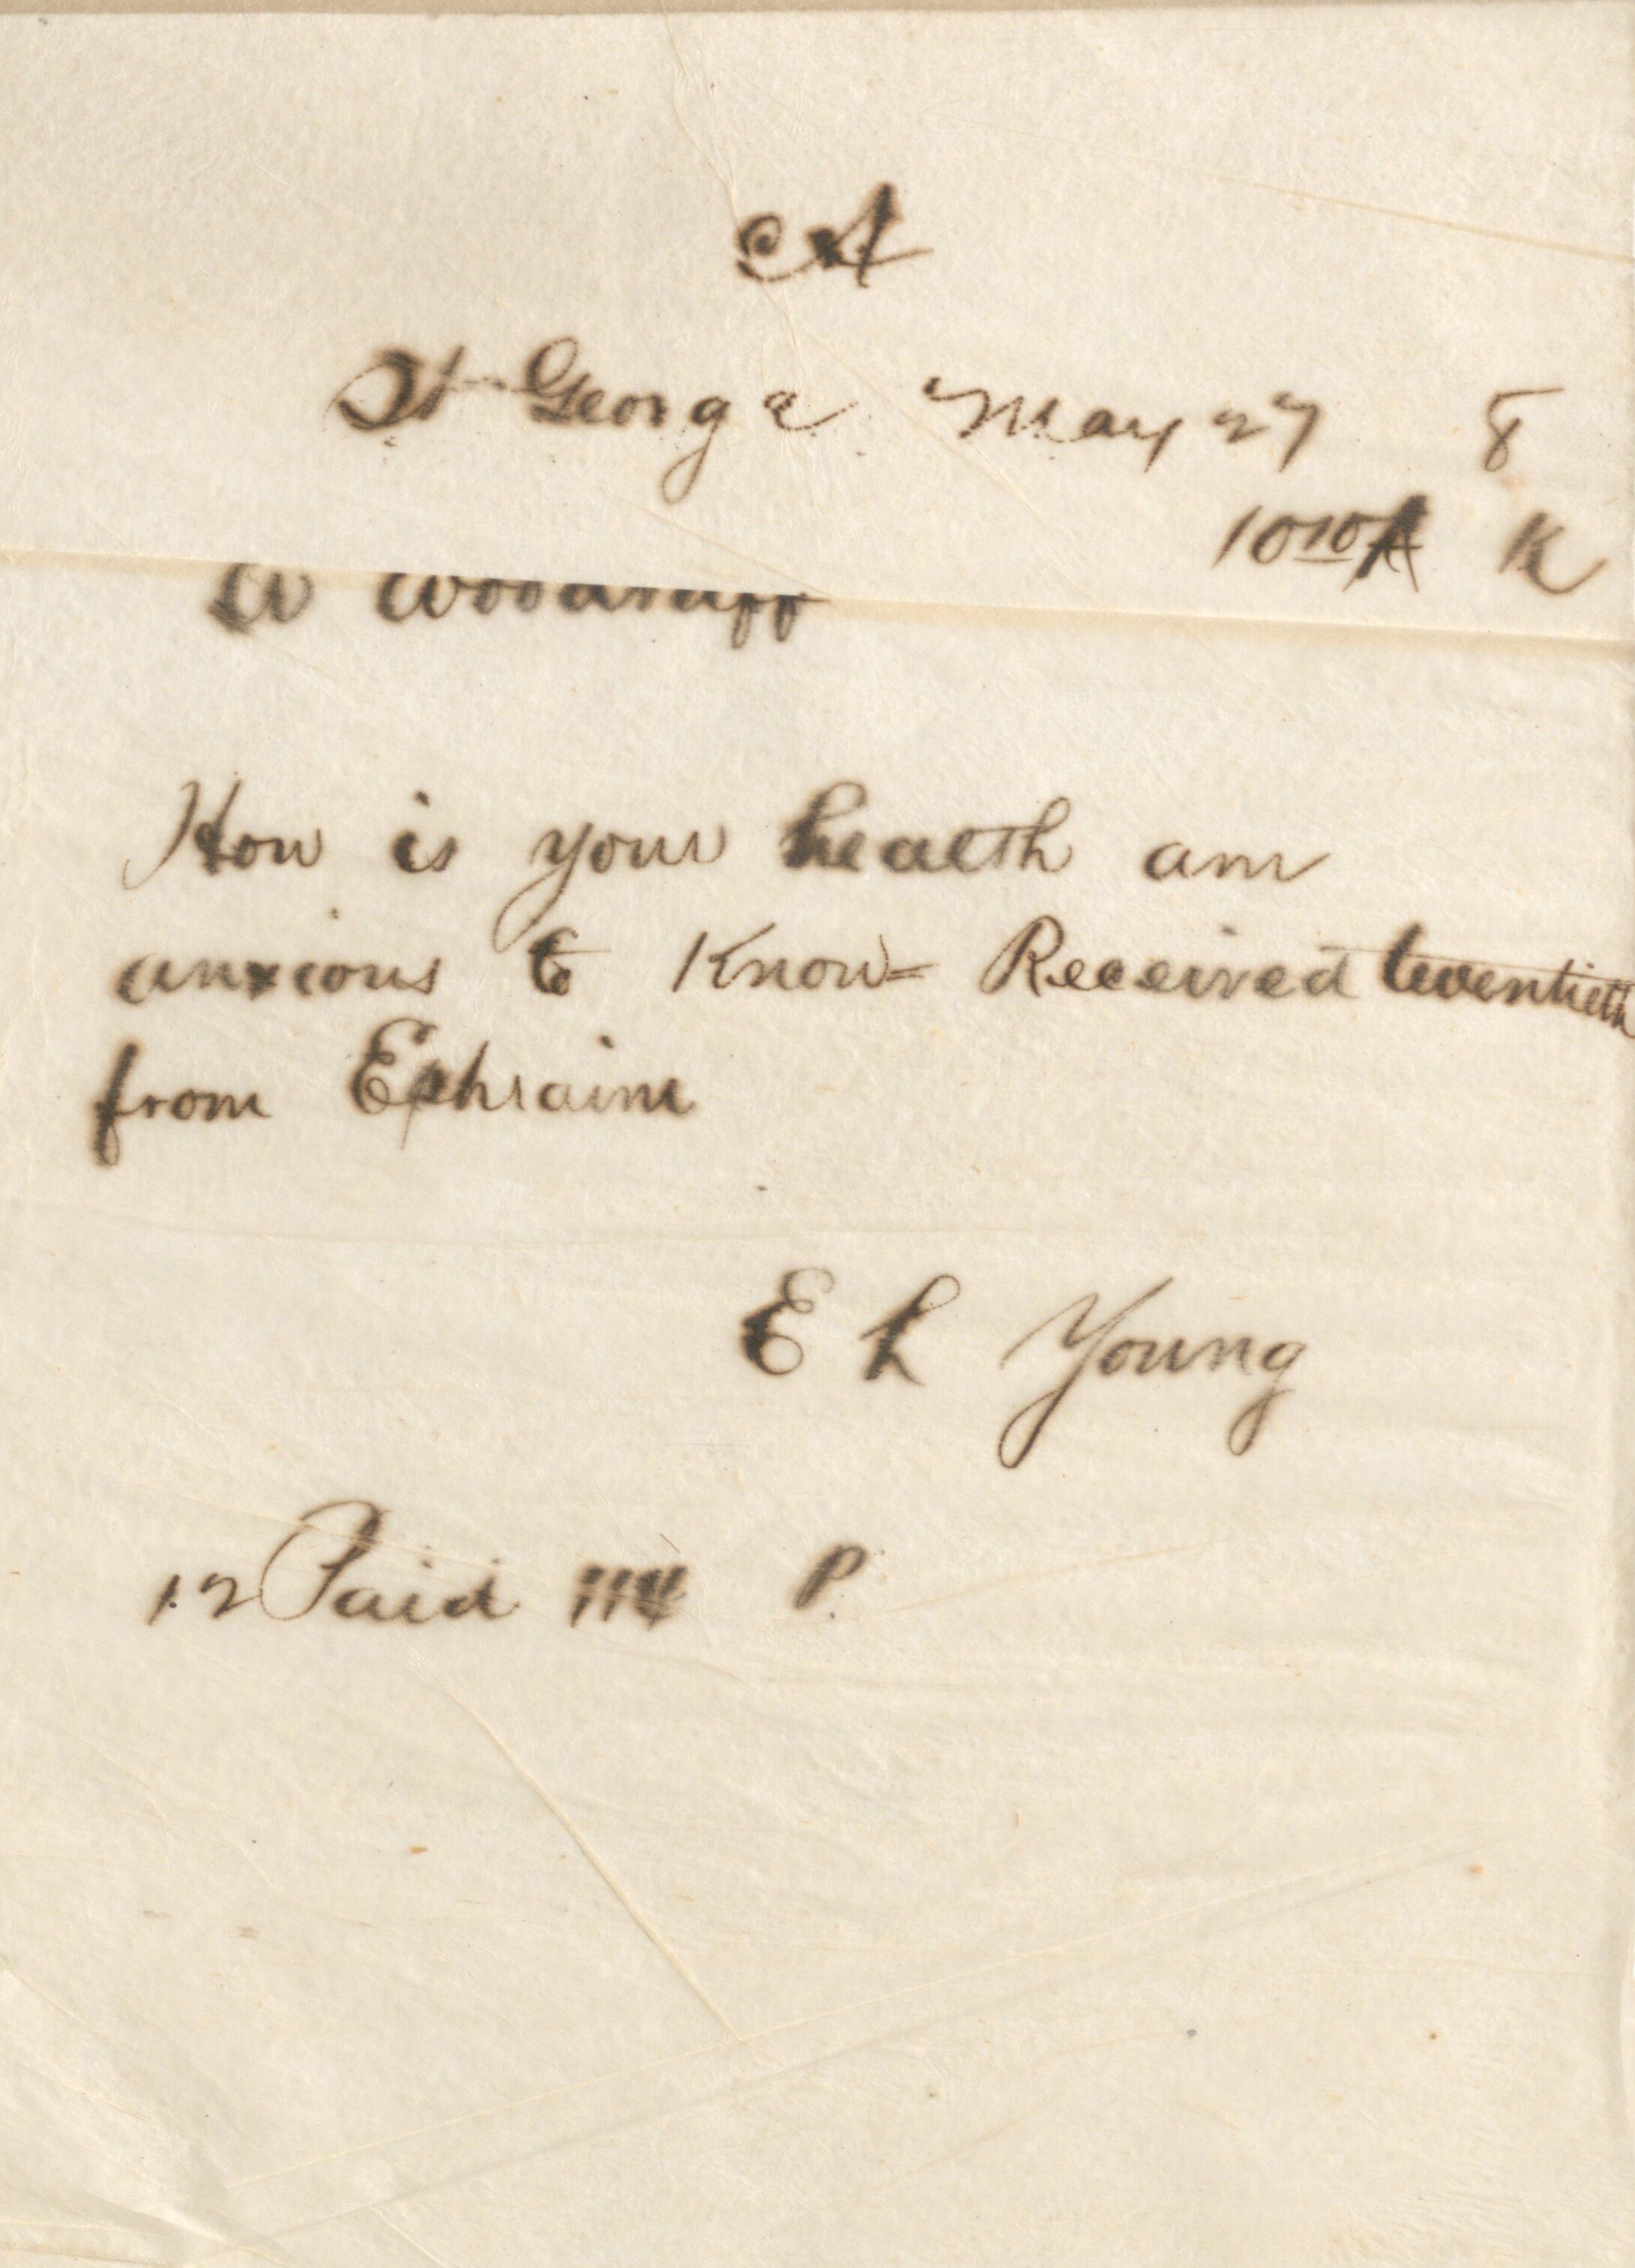 A
St George May 27 8
10 10 A K
W Woodruff
How is your health am
anxious to Know = Received twentieth
from Ephraim
E L Young
12 Paid 114 P